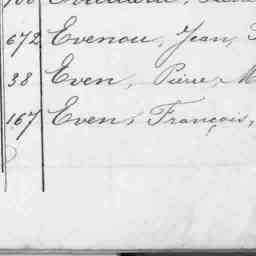 672 Evenou, Jean,
38 Even, Pierre, M
167 Even, François,